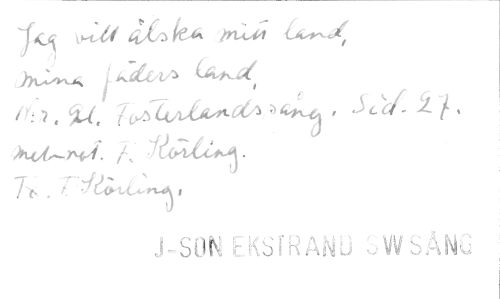 Jag vill älska mitt land,
mina fäders land,
N:r. 21. Fosterlandssång. Sid. 27.
F. Körling.
F. Körling.
J-SON EKSTRAND SW SÅNG